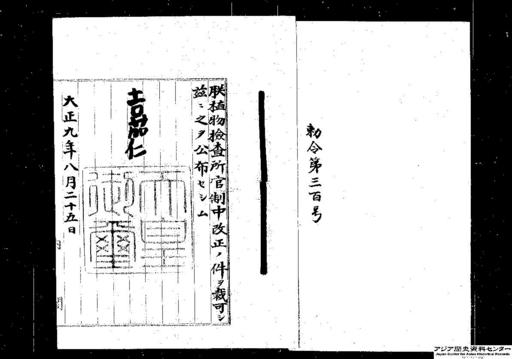 勅令第三百号
朕植物検査所官制中改正ノ件ヲ裁可シ
茲ニ之ヲ公布セシム
嘉仁
天皇
御璽
大正九年八月二十五日
アジア歴史資料センター
Japan Center for Asian Historical Records